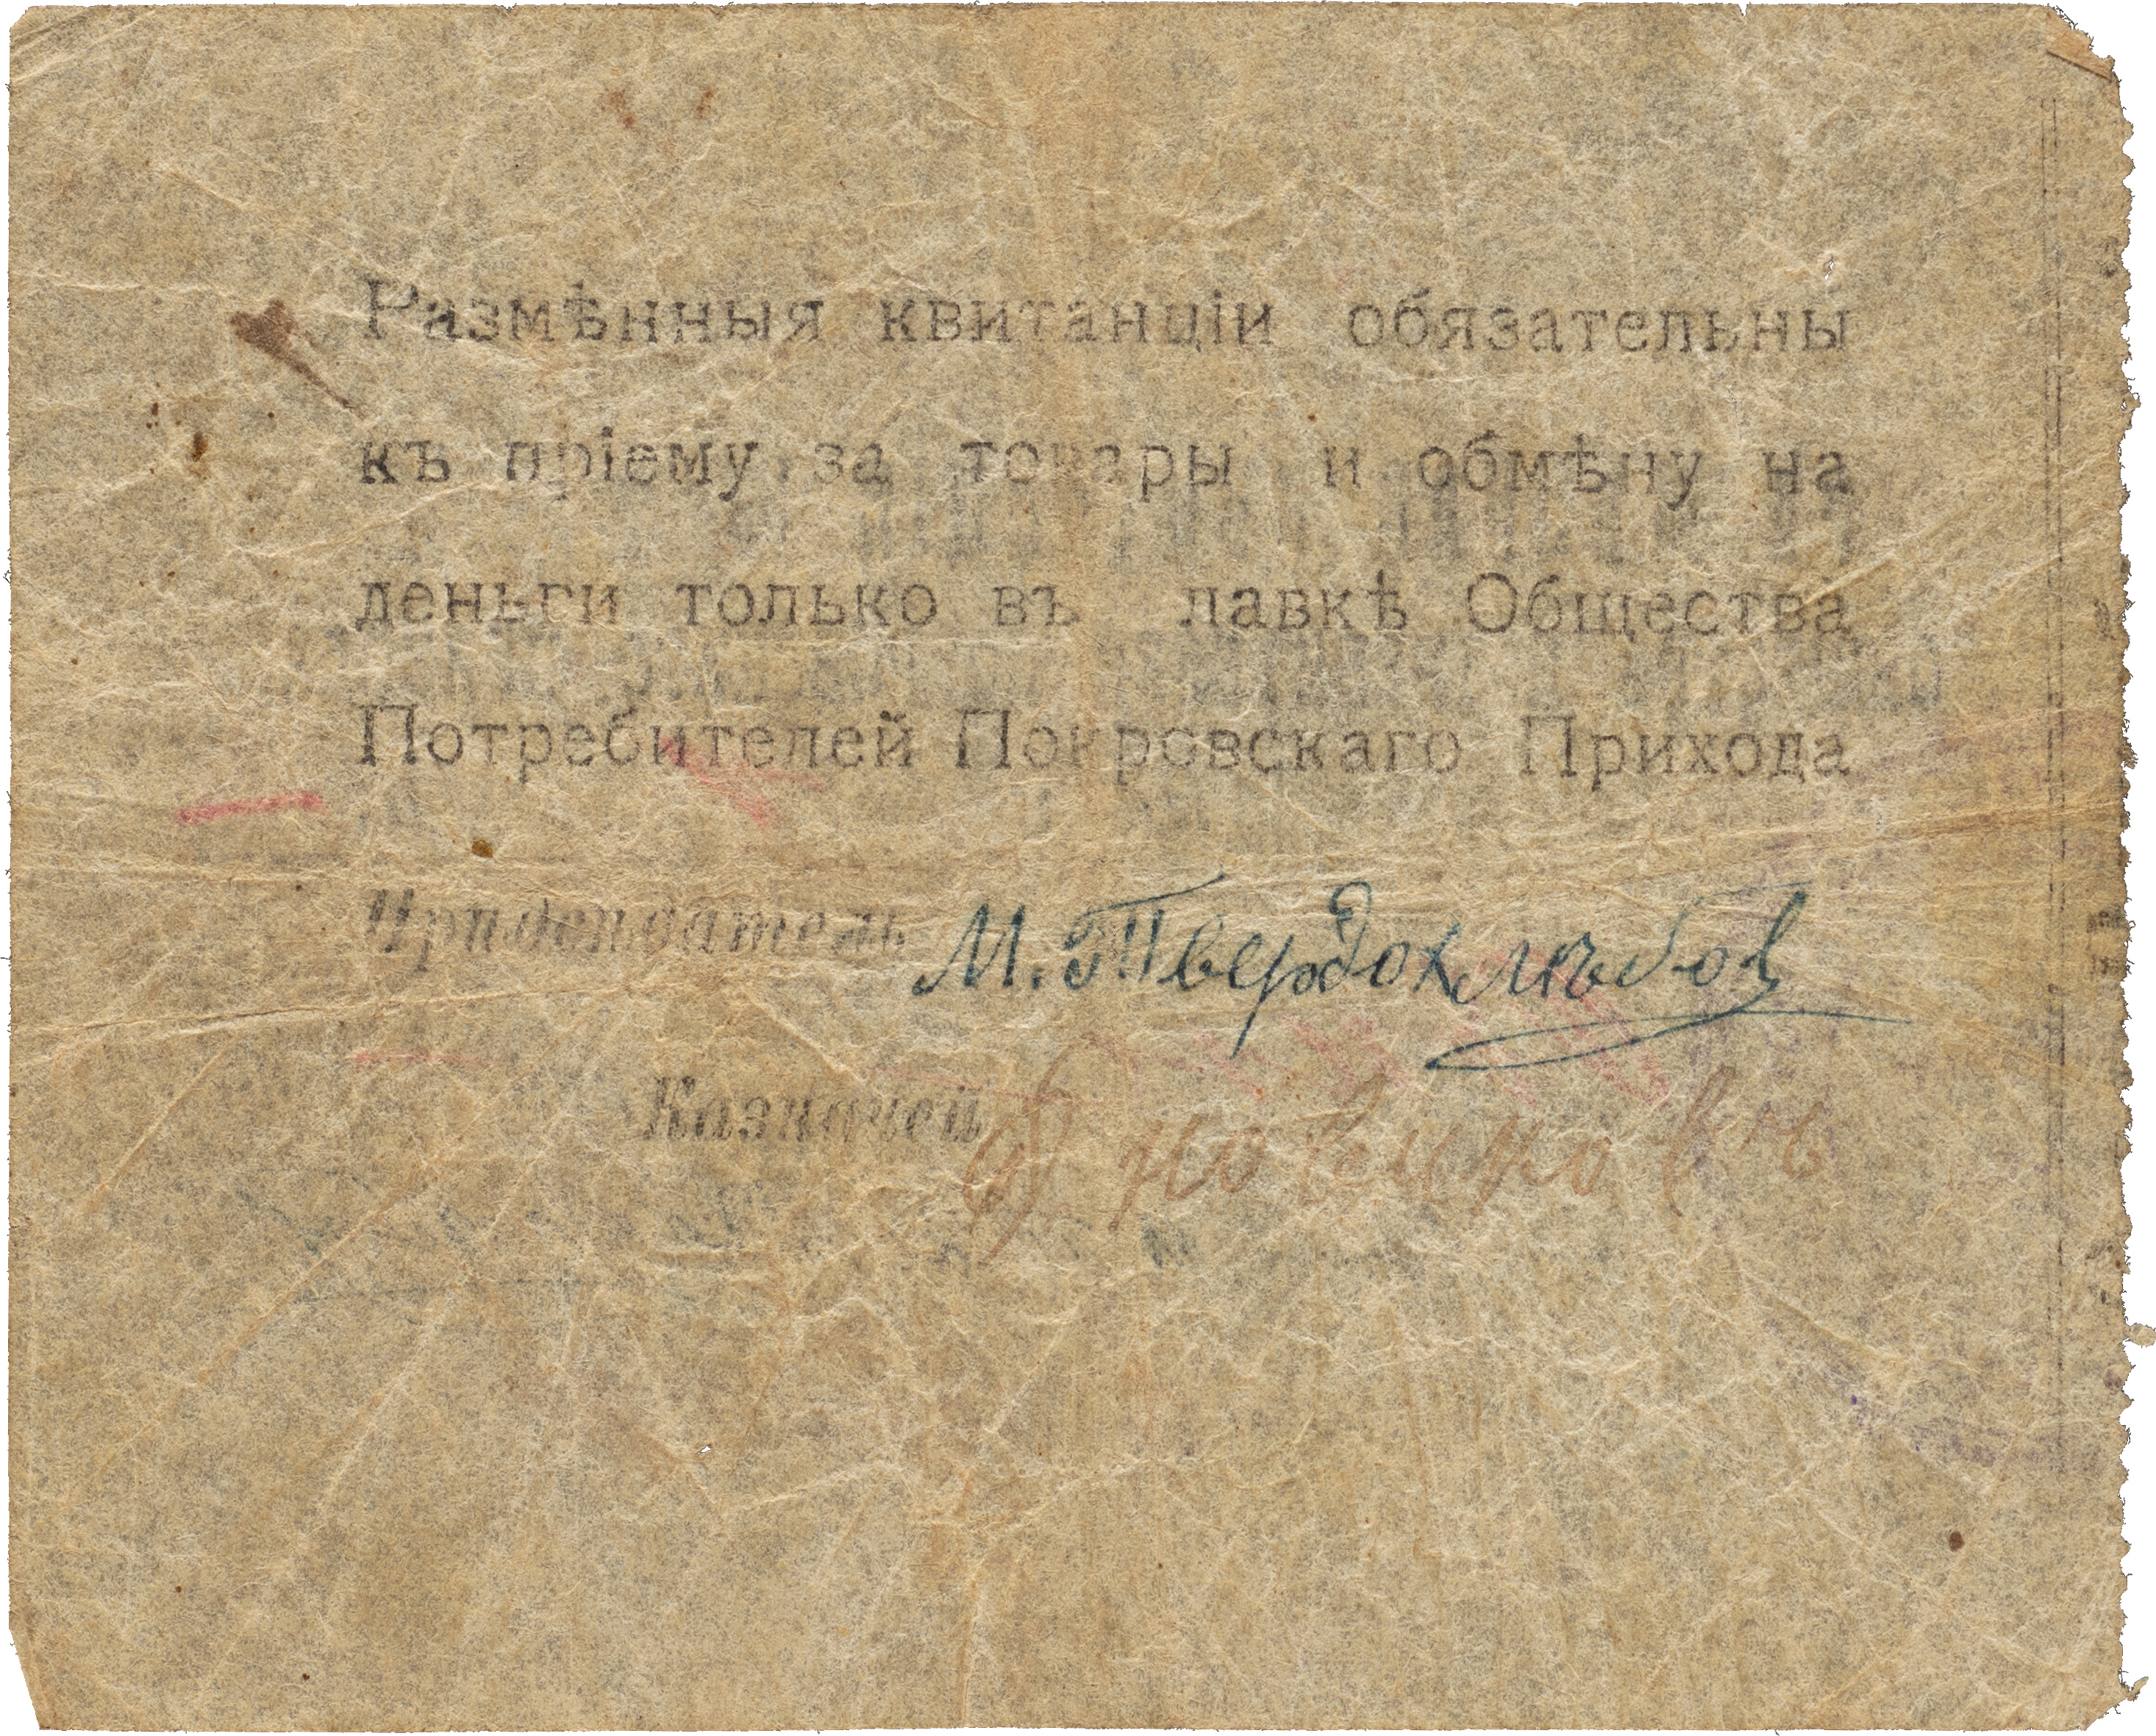 Размѣнныя квитанціи обязательны
къ пріему за товары и обмѣну на
деньги только въ лавкѣ Общества
Потребителей Покровскаго Прихода
Придсѣдатель М. Твердохлѣбов
Казначей